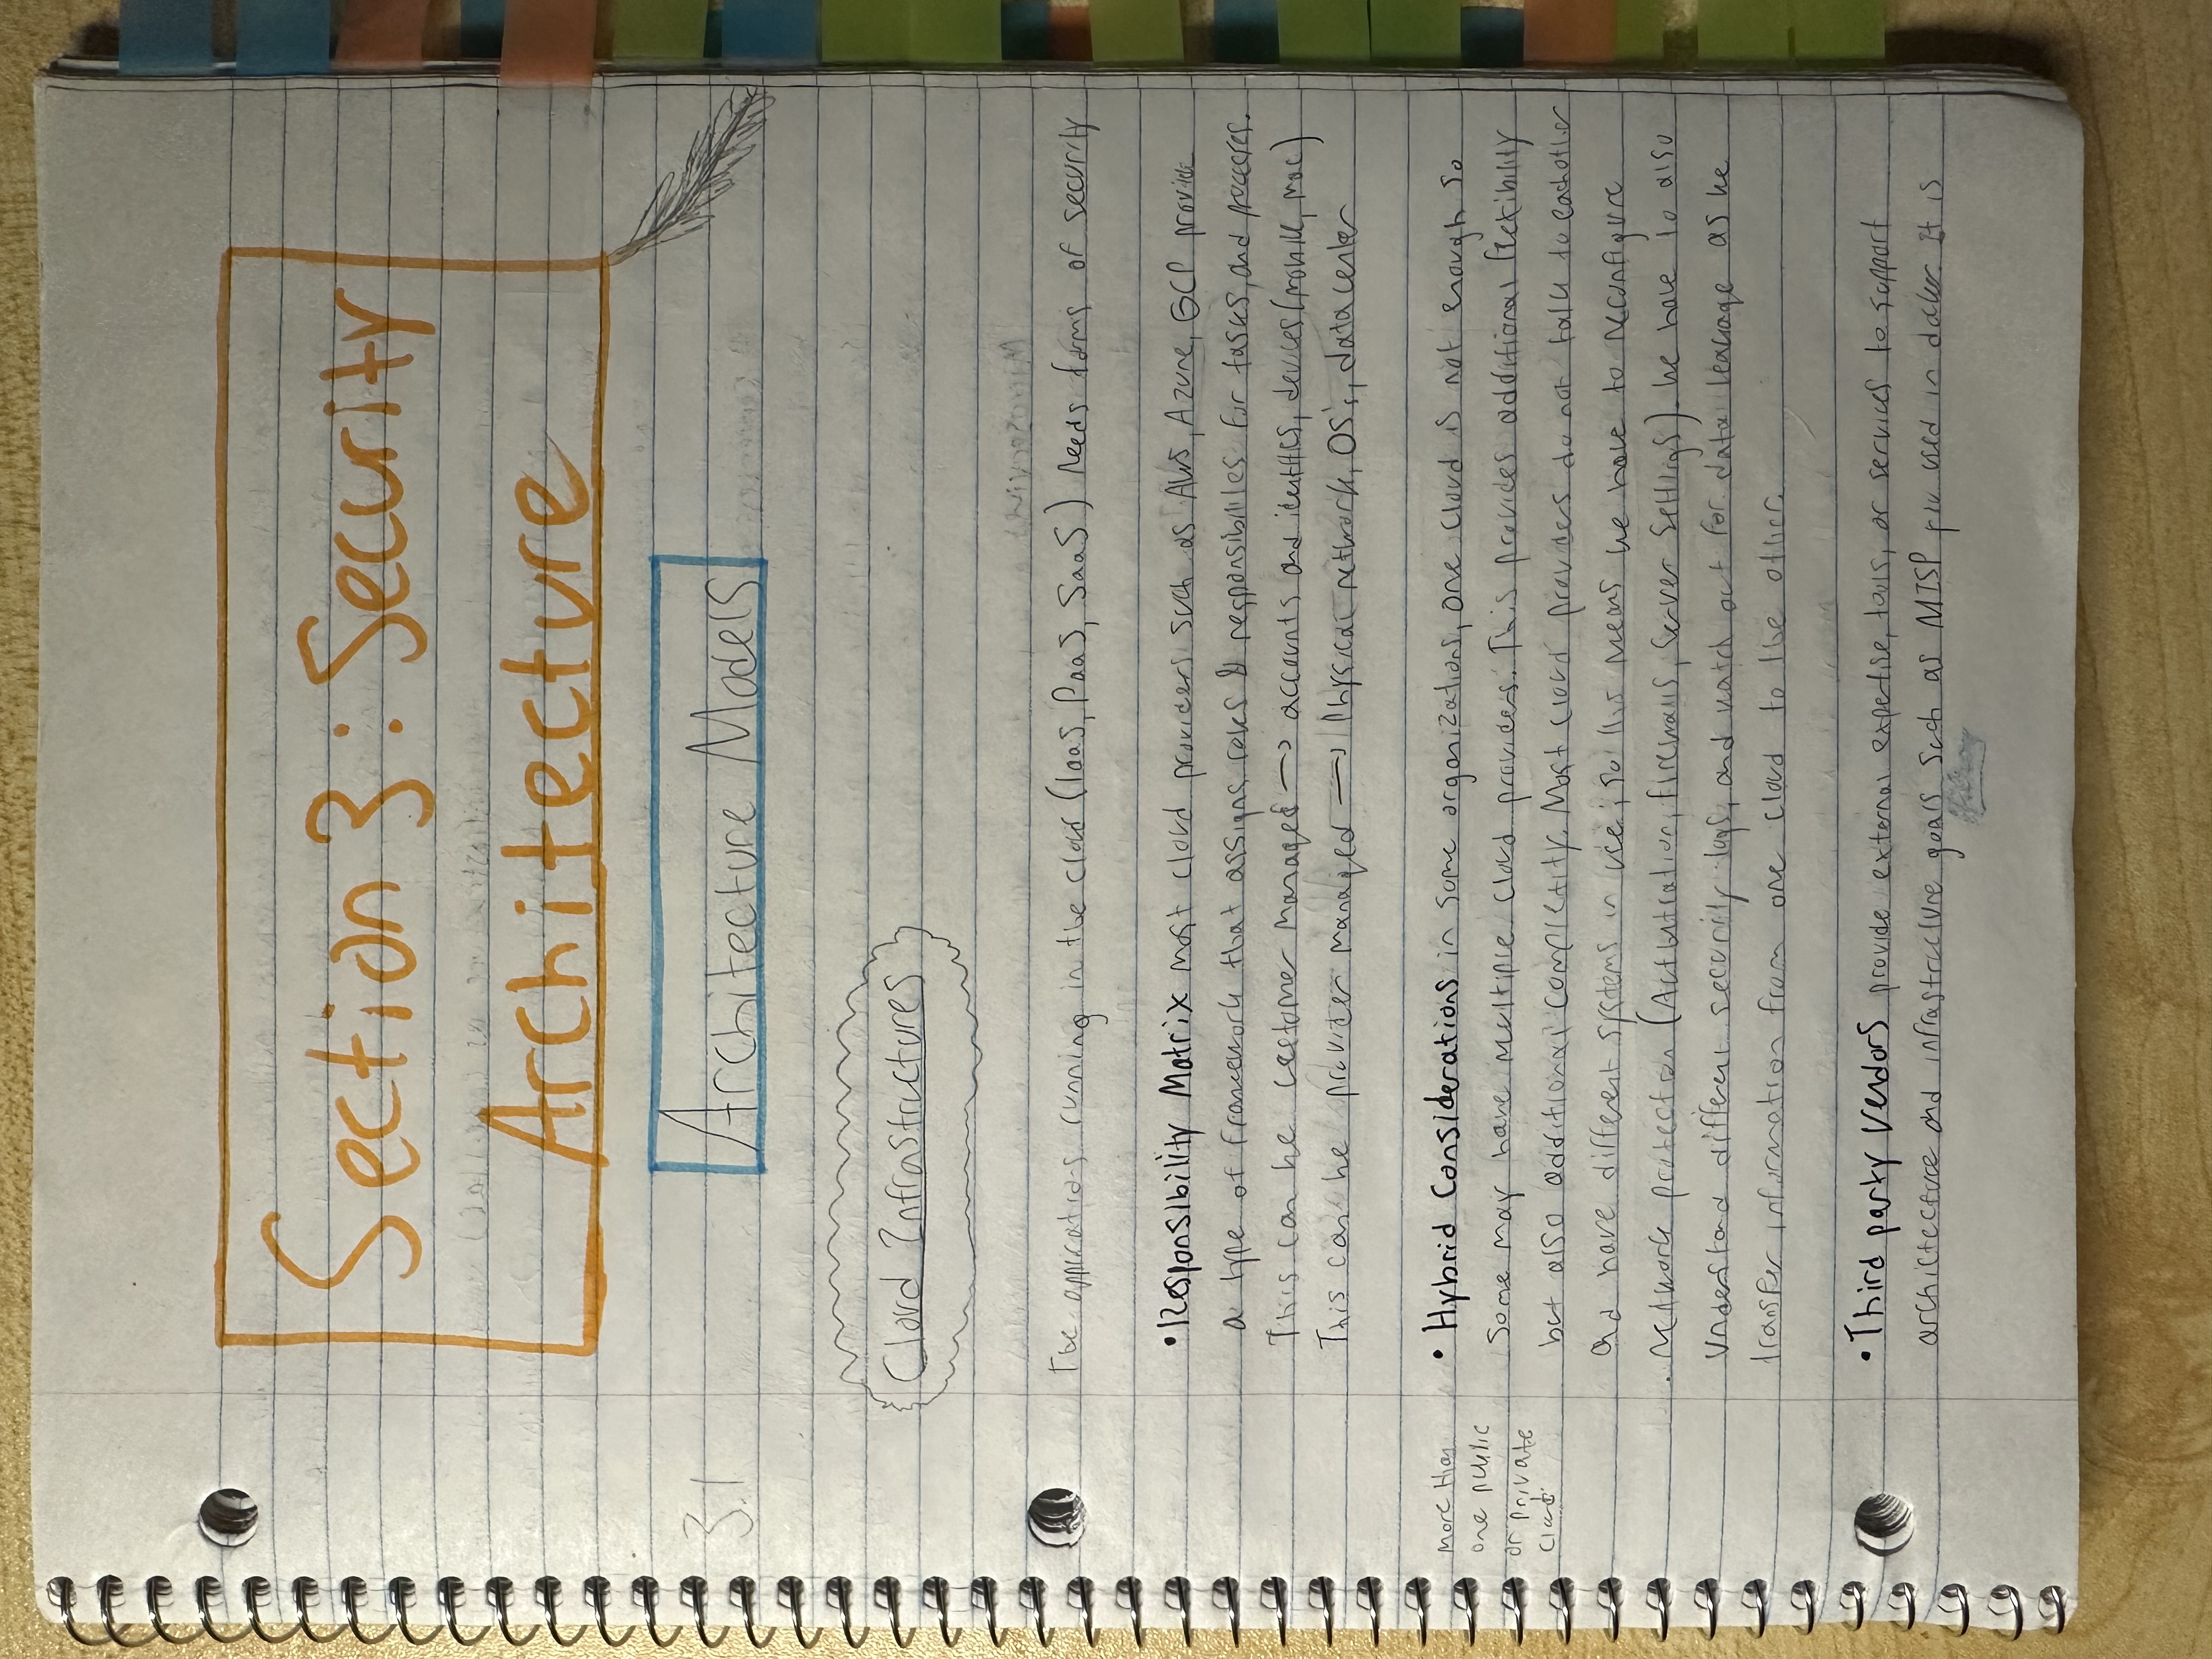 Section 3: Security
Architecture
3.1
Architecture Models
Cloud Infrastructures
The applications running in the cloud (IaaS, PaaS, SaaS) needs forms of security
• Responsibility Matrix most cloud providers such as AWS, Azure, GCP provide
a type of framework that assigns roles & responsibilites for tasks, and processes.
This can be customer managed → accounts and identities, devices (mobile, mac)
This can be provider managed → Physical network, OS's, datacenter
more than
one public
or private
cloud
• Hybrid Considerations in some organizations, one cloud is not enough so
some may have multiple cloud providers. This provides additional flexibility
but also additional complexity. Most cloud providers do not talk to eachother
and have different systems in use; so this means we have to reconfigure
network protection (Authtication, firewalls, server settings). we have to also
understand different security logs, and watch out for data leakage as we
transfer information from one cloud to the other.
• Third party Vendors provide external expertise, tools, or services to support
archictecture and infrastructure goals such as MISP used in docker. It is